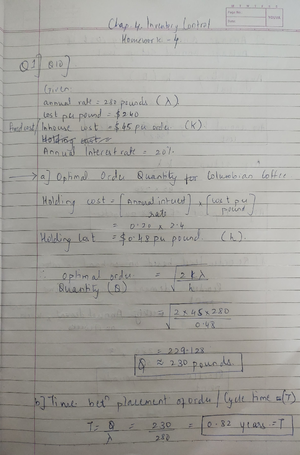 Chap. 4. Inventory Control
Homework - 4
Q1] Q10]
Given:
annual rate = 280 pounds (λ)
cost per pound = $2.40
Inhouse cost = $45 per order (K)
Holding cost =
Annual Interest rate = 20%
→ a] Optimal Order Quantity for Columbian Coffee
Holding cost = [Annual interest rate] × [cost per pound]
= 0.20 × 2.4
Holding Cost = $0.48 per pound (h).
∴ Optimal order Quantity (Q) = √2Kλ / h
= √2×45×280 / 0.48
= 229.128
Q ≈ 230 pounds
b] Time betn placement of order / Cycle time = (T)
T = Q / λ = 230 / 280 = 0.82 years = T